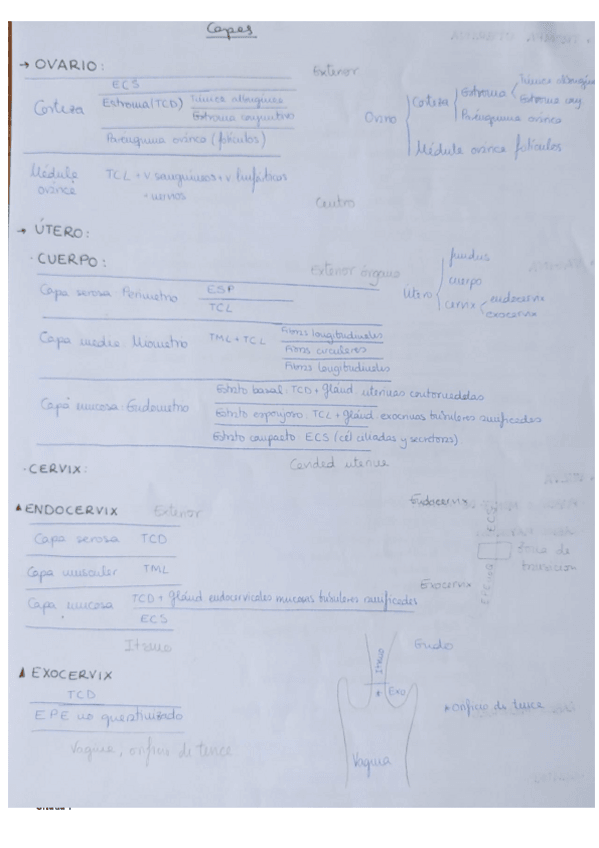 Capas
→ OVARIO:
Exterior
ECS
Corteza
Estroma (TCD)
Túnica albugínea
Estroma conjuntivo
Parénquima ovárico (folículos)
Médula ovárica
TCL + v. sanguíneos + v. linfáticos + nervios
Centro
Ovario
Corteza
Estroma
Túnica albugínea
Estroma conj
Parénquima ovárico
Médula ovárica folículos
→ ÚTERO:
· CUERPO:
Exterior órgano
Capa serosa Perimetrio
ESP
TCL
Capa media Miometrio
TML + TCL
Fibras longitudinales
Fibras circulares
Fibras longitudinales
Capa mucosa Endometrio
Estrato basal: TCD + gländ. uterinas contorneadas
Estrato esponjoso: TCL + gländ. exocrinas tubulares ramificadas
Estrato compacto: ECS (cél ciliadas y secretoras)
Cavidad uterina
Útero
fundus
cuerpo
cervix
endocervix
exocervix
· CERVIX:
▲ ENDOCERVIX
Exterior
Capa serosa TCD
Capa muscular TML
Capa mucosa
TCD + gländ endocervicales mucosas tubulares ramificadas
ECS
Itsmo
Endocervix
ECS
zona de transición
Exocervix
EPE no q
▲ EXOCERVIX
TCD
EPE no queratinizado
Vagina, orificio de tence
Itsmo
Endo
* Exo
* orificio de tence
Vagina